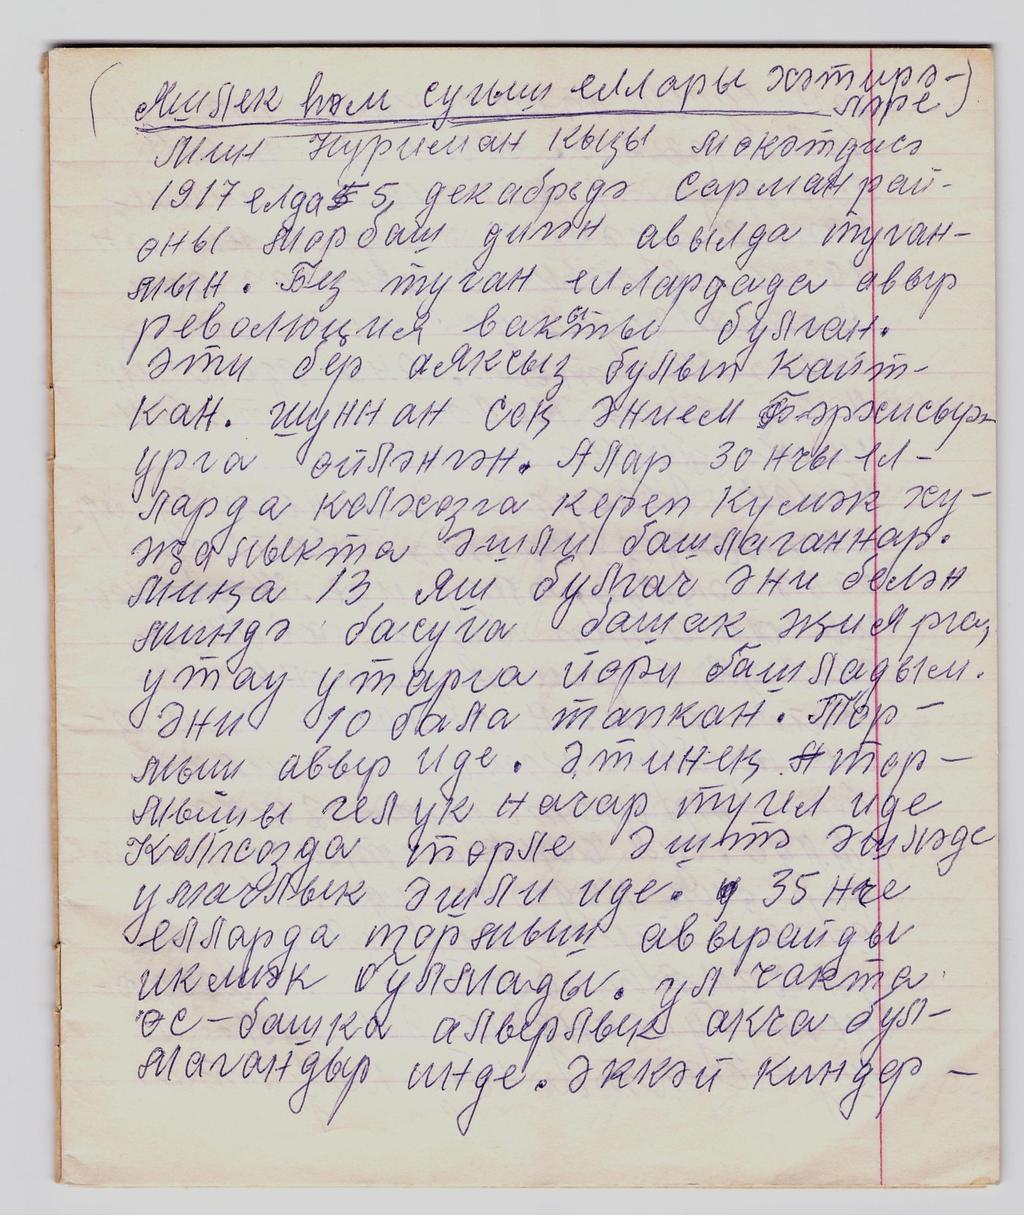 (Яшьлек һәм сугыш еллары хәтирә-
ләре)
Мин Нуриман кызы Мөкәтдисә
1917 елда 5 декабрьдә Сарман рай-
оныТорбаш дигән авылда туган-
мын. Без туган еллардада авыр
революция вакыты булган.
Әти бер аяксыз булып кайт-
кан. Шуннан соң Әнием
урга өйләнгән. Алар 30 нчы ел-
ларда колхозга кереп күмәк ху-
җалыкта эшли башлаганнар.
Миңа 13 яш булгач Әни белән
миндә басуга башак җиярга,
утау утарга йөри башладым.
Әни 10 бала тапкан. Тор-
мыш авыр иде. Әтинең тор-
мышы челук начар тугел иде
Колхозда төрле эштә эшләде
умачлык эшли иде. 35 нче
елларда тормыш авырайды
икмәк булмады. ул чакта
өс-башка алырлык акча бул-
магандыр инде. Әккәй киндер-